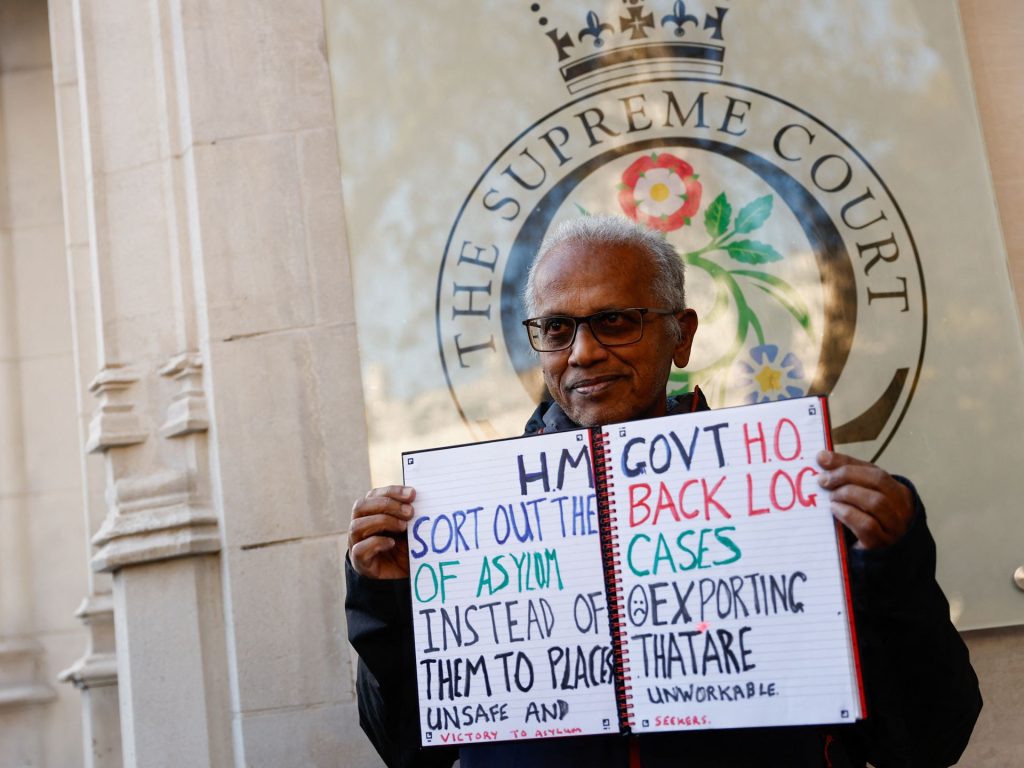 THE SUPREME COURT
H.M GOVT. H.O.
SORT OUT THE BACK LOG
OF ASYLUM CASES
INSTEAD OF EXPORTING
THEM TO PLACES THAT ARE
UNSAFE AND UNWORKABLE.
VICTORY TO ASYLUM SEEKERS.